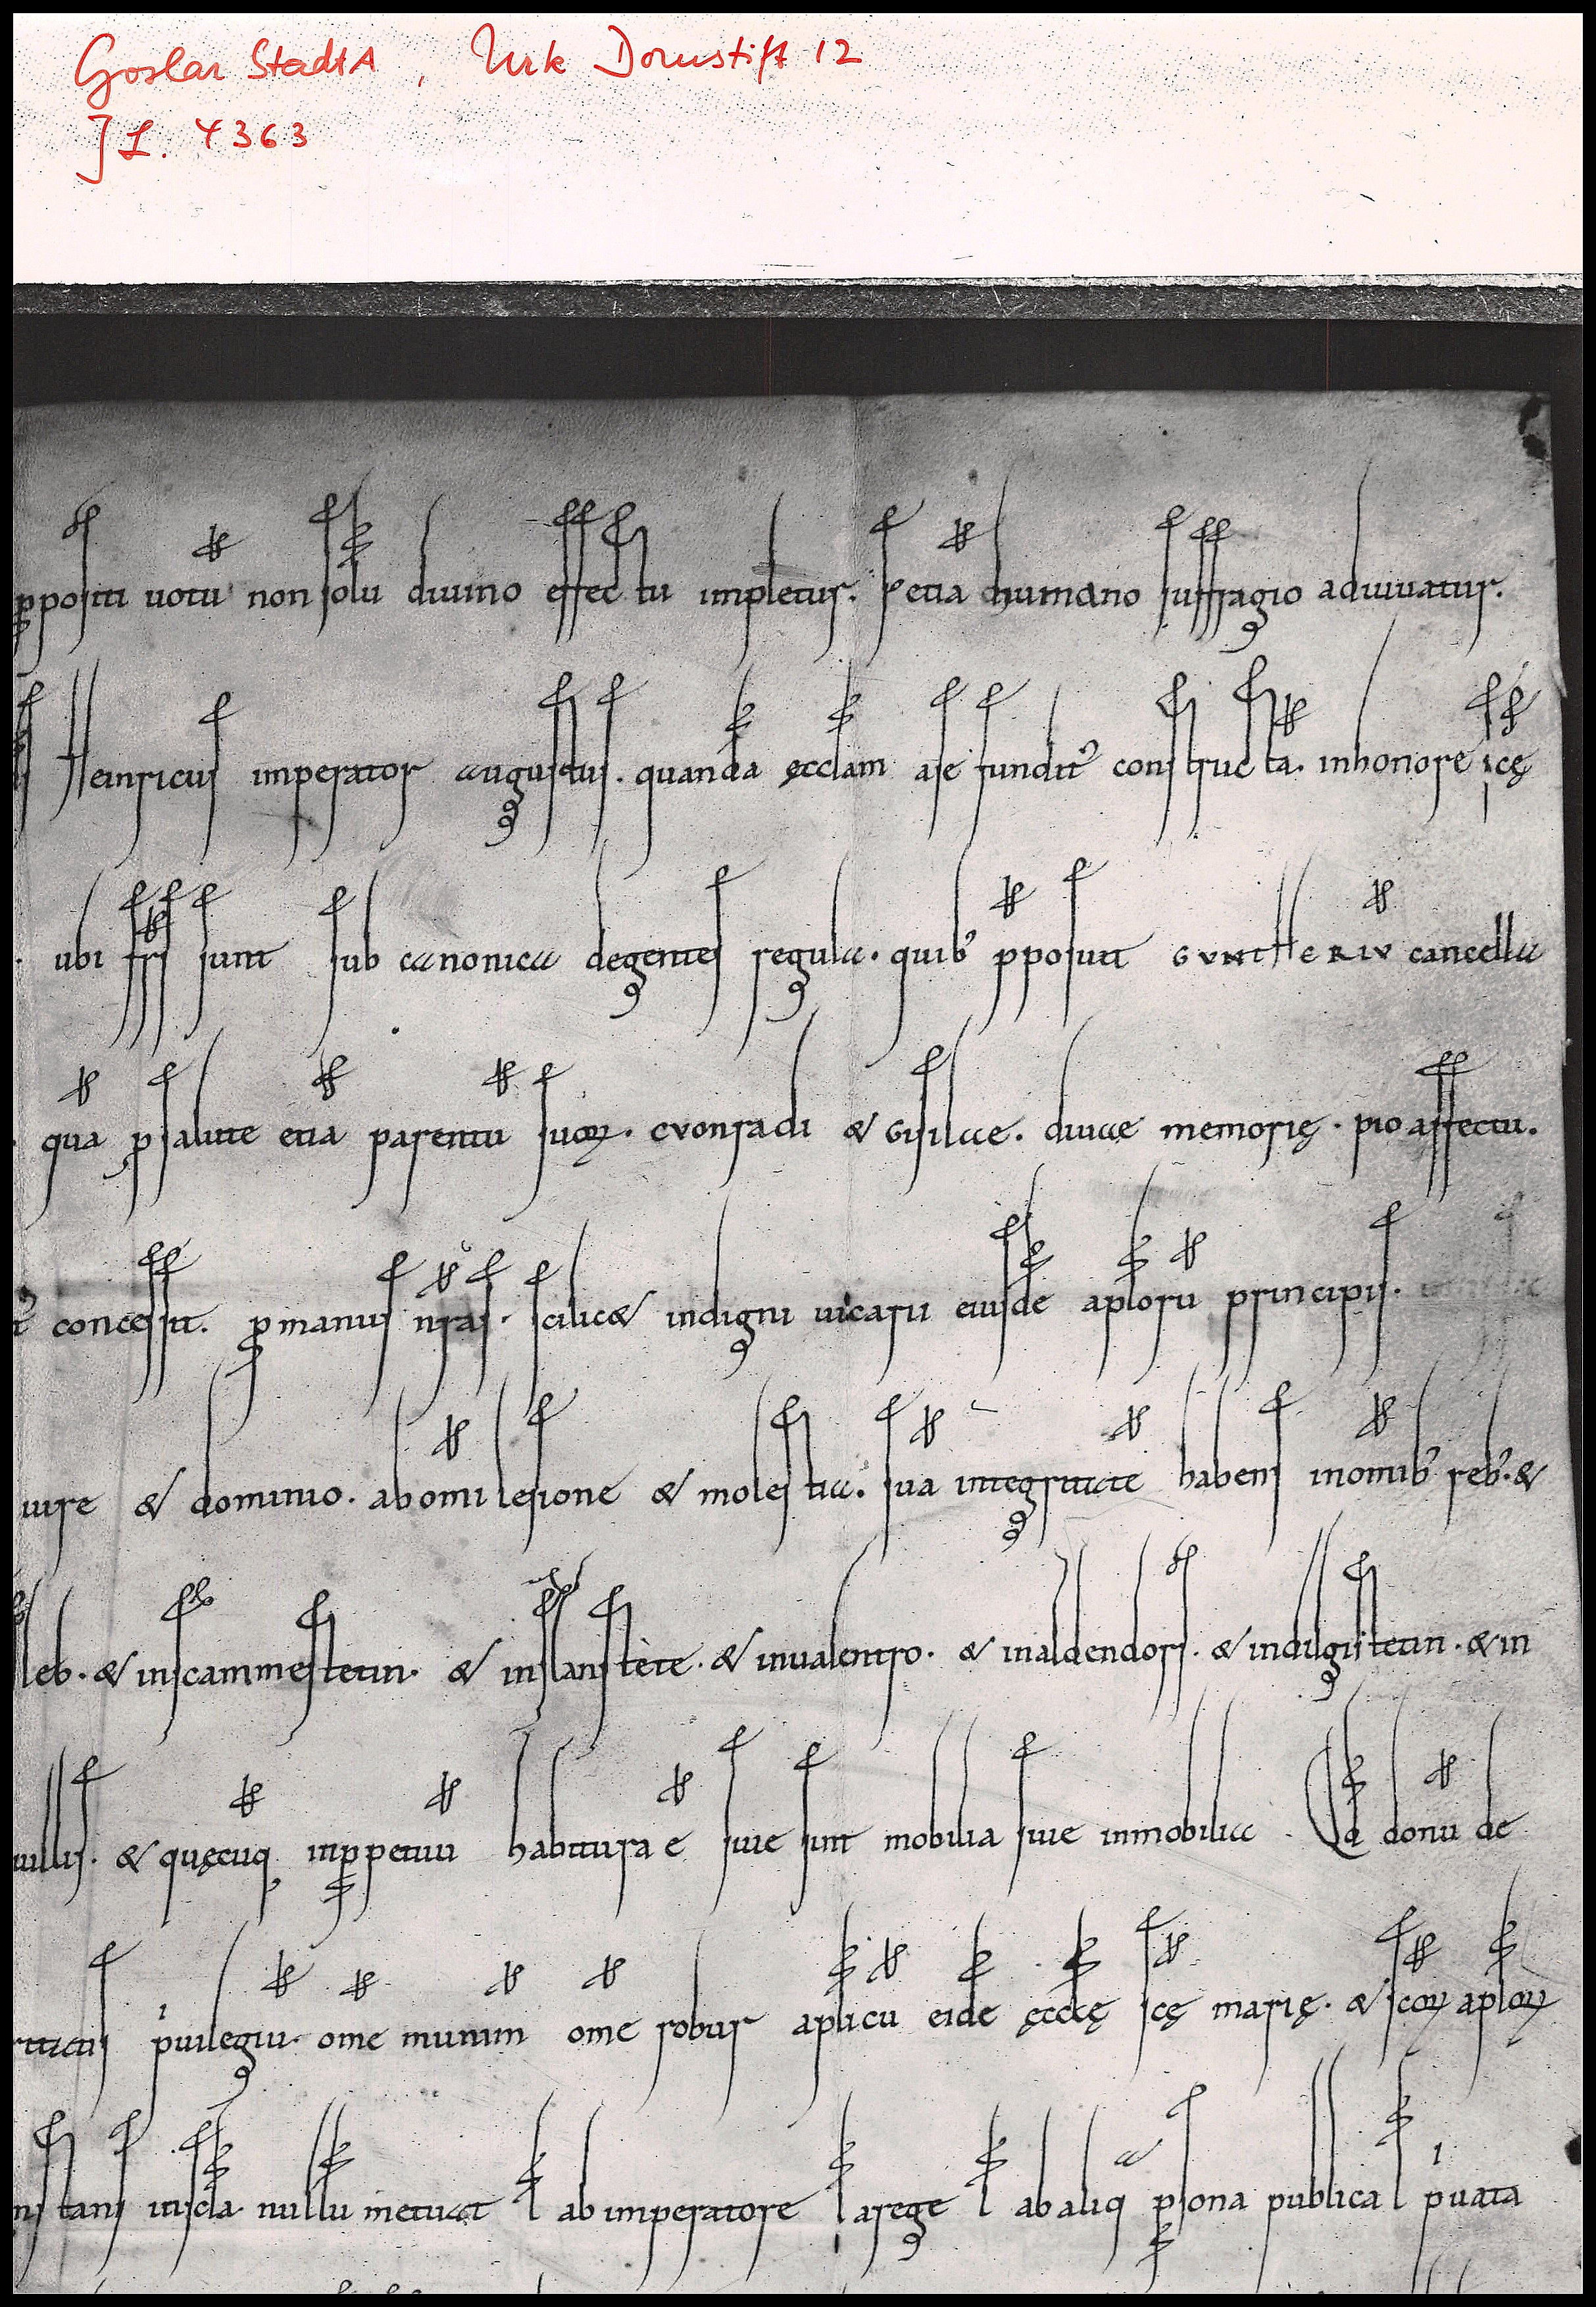 Goslar StadtA, Urk Domstift 12
JL. 4363
ppositi votu non solu divino effectu impletur. s; etia humano suffragio adiuvatur.
Heinricus imperator augustus. quanda ęcclam a se fundit' constructa. in honore scę
ubi frs sunt sub canonica degentes regula. quib' pposuit GVNTHERIV cancella
qua p salute etia parentu suoꝝ. cvonradi & Gisilae. divae memorię. pio affectu.
concessit. p manus nras. scilic& indigni vicarii eiusde aploru principis.
iure & dominio. ab omi lesione & molestia. sua integritate habens in omib' reb'. &
leb. & inscammestetin. & inslanstete. & invalentro. & inaldendorf. & indilgisstetin. & in
villis. & quęcuq inppetuu habitura e sive sunt mobilia sive inmobilia. Qd donu de
privilegiu. ome munim ome robur aplicu eide ęcclę scę marię. & scoꝝ aploꝝ
nstans iuscla nullu metuat l ab imperatore l a rege l ab aliq psona publica l pivata